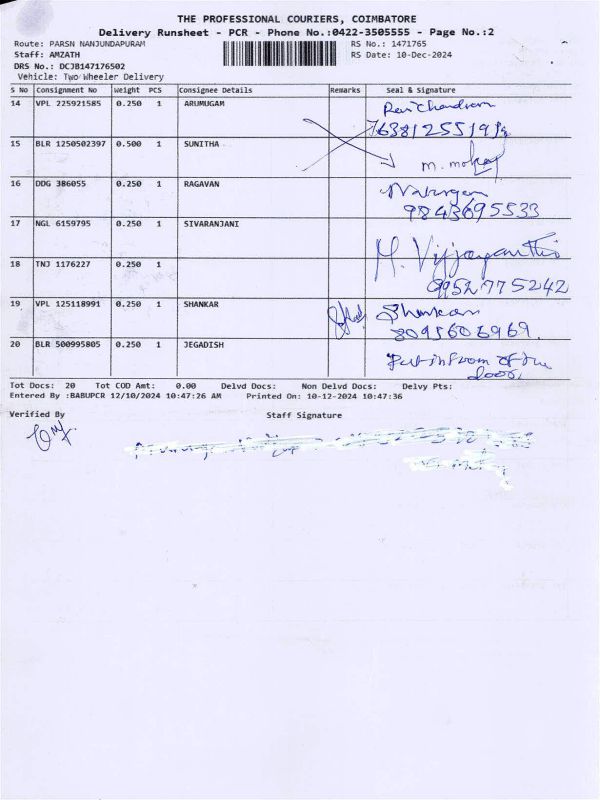 THE PROFESSIONAL COURIERS, COIMBATORE
Delivery Runsheet - PCR - Phone No.:0422-3505555 - Page No.:2
Route: PARSN NANJUNDAPURAM RS No.: 1471765
Staff: AMZATH RS Date: 10-Dec-2024
DRS No.: DCJB147176502
Vehicle: Two Wheeler Delivery
S No Consignment No Weight PCS Consignee Details Remarks Seal & Signature
14 VPL 225921585 0.250 1 ARUMUGAM
15 BLR 1250502397 0.500 1 SUNITHA
16 DDG 386055 0.250 1 RAGAVAN
9843695533
17 NGL 6159795 0.250 1 SIVARANJANI
18 TNJ 1176227 0.250 1
9952775242
19 VPL 125118991 0.250 1 SHANKAR Shankar
8095606969
20 BLR 500995805 0.250 1 JEGADISH
door
Tot Docs: 20 Tot COD Amt: 0.00 Delvd Docs: Non Delvd Docs: Delvy Pts:
Entered By :BABUPCR 12/10/2024 10:47:26 AM Printed On: 10-12-2024 10:47:36
Verified By Staff Signature